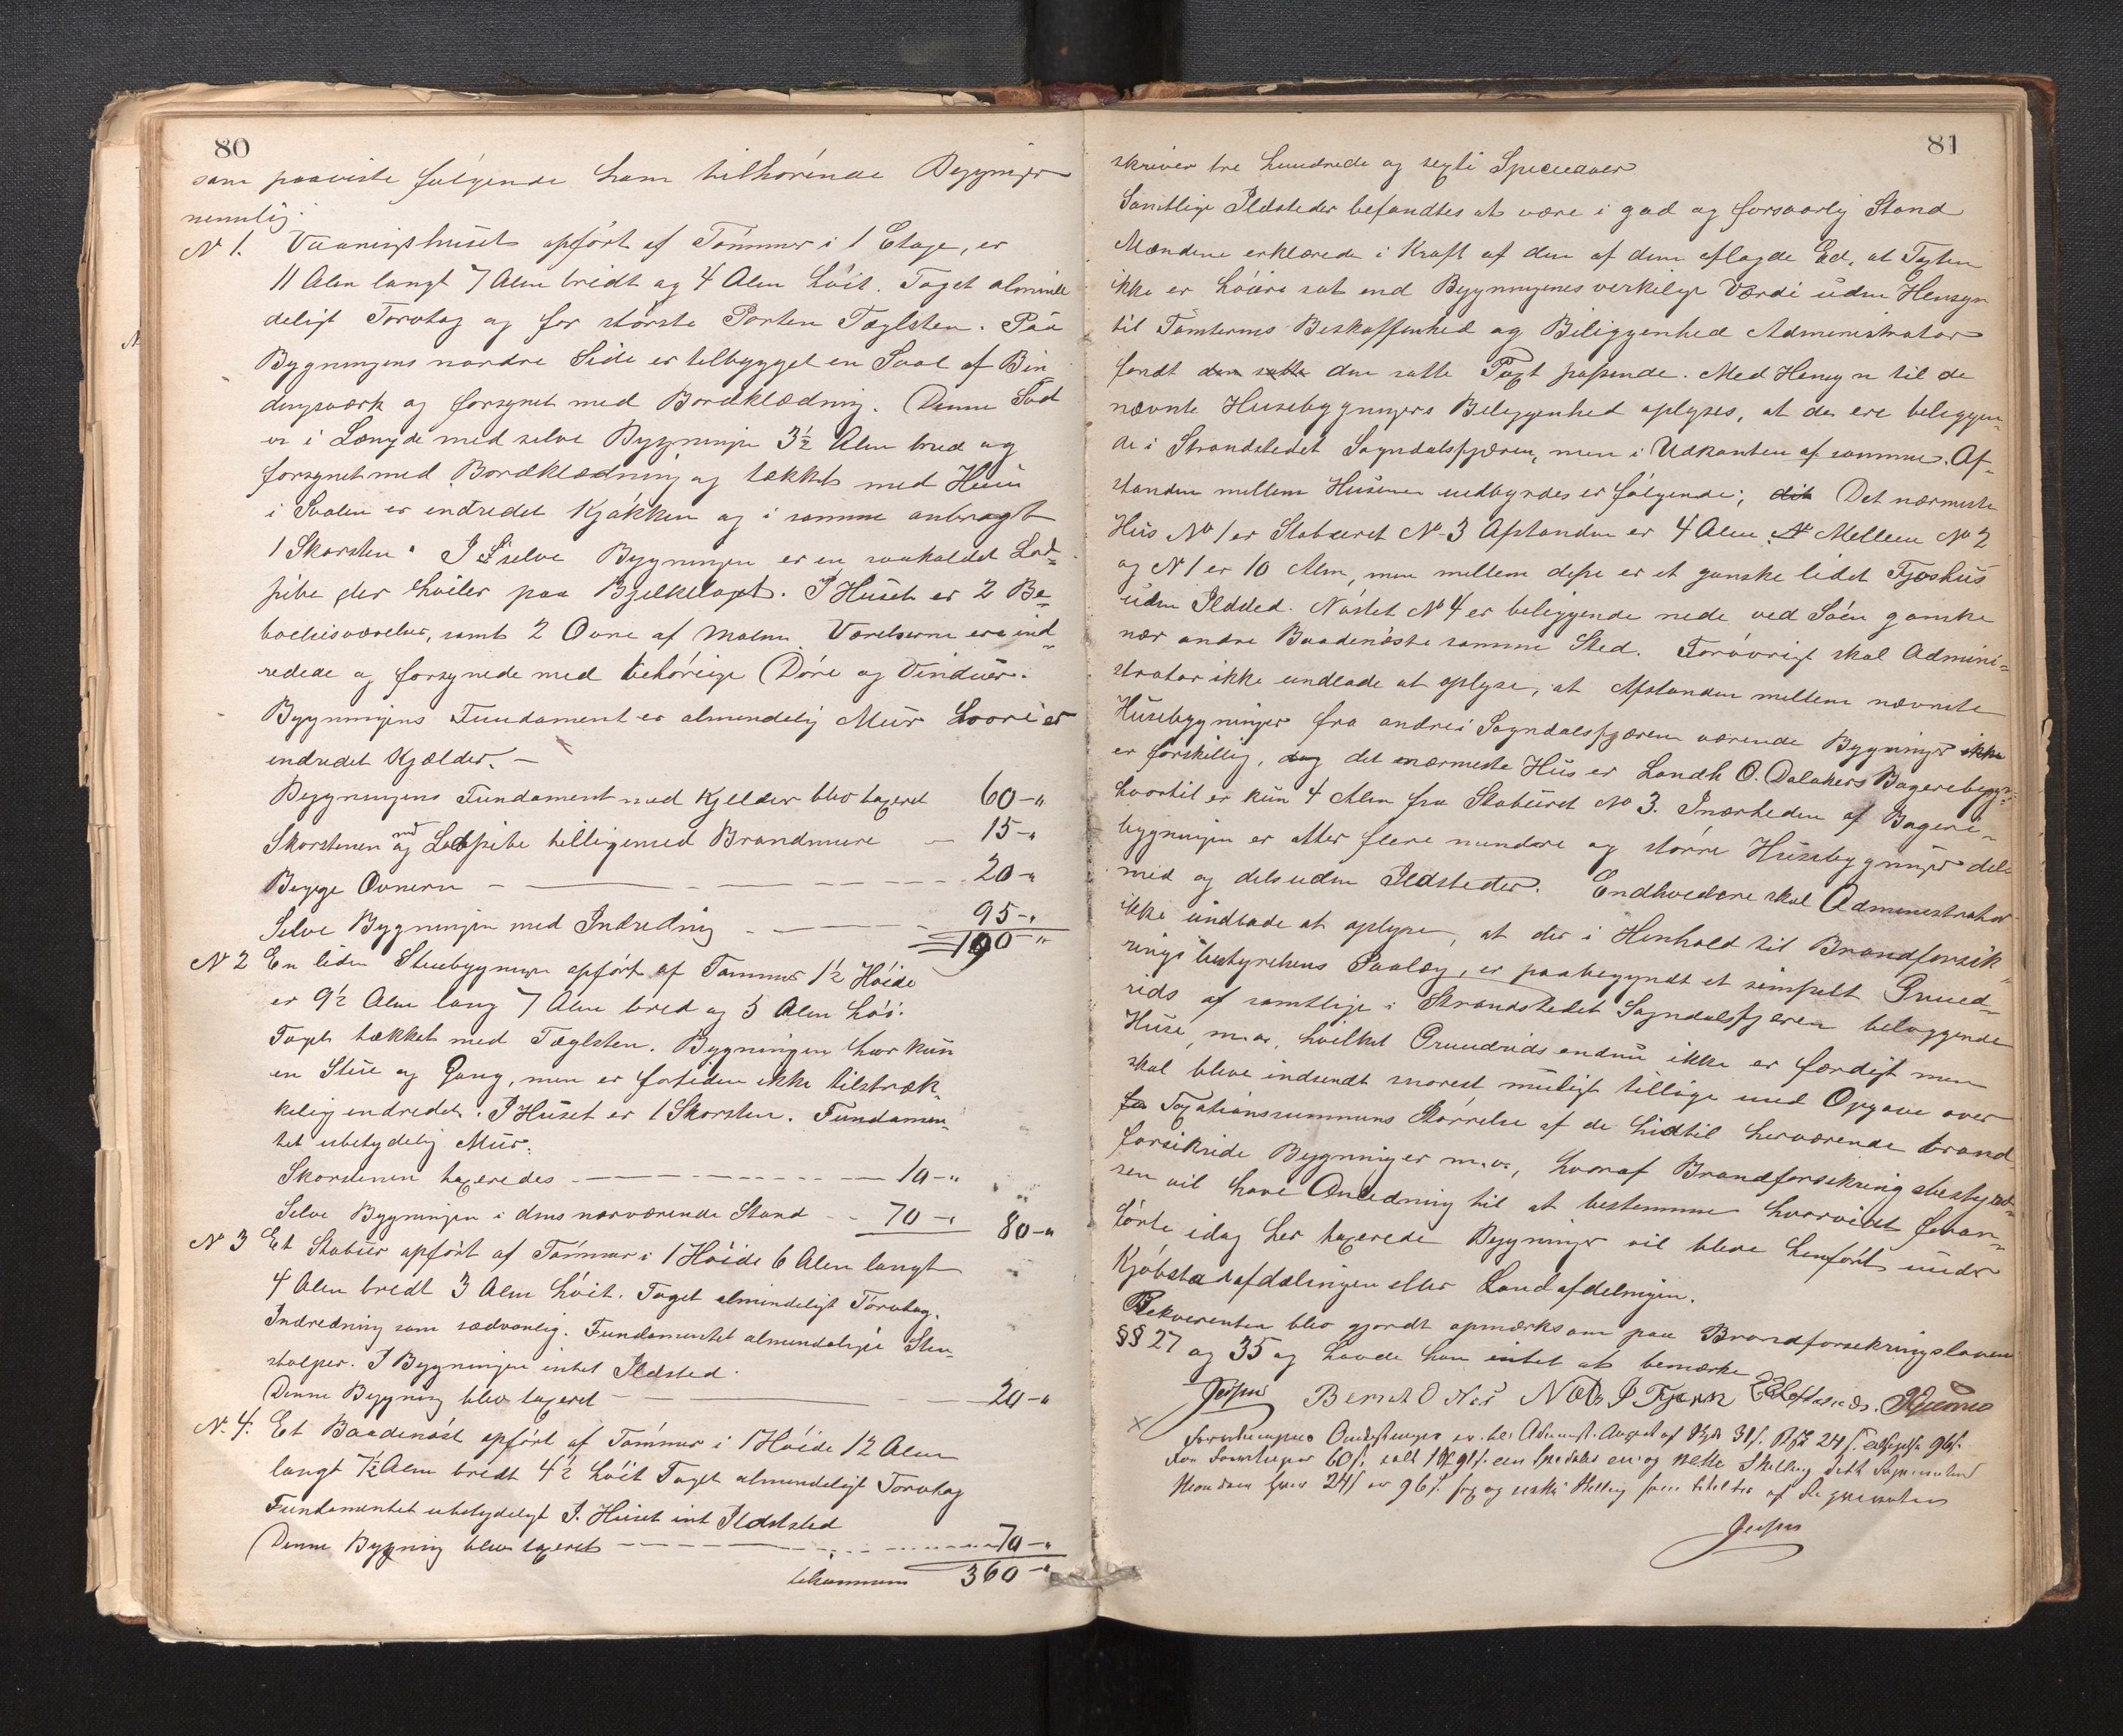 80
som paaviste følgende ham tilhørende Bygninger
nemlig:
N 1. Vaaningshuset opført af Tømmer i 1 Etage, er
11 Alen langt 7 Alen bredt og 4 Alen høit. Taget almin
deligt Torvtag og for største Parten Tæglsten. Paa
Bygningens nordre Side er tilbygget en Sval af Bin
dingsværk og forsynet med Bordklædning. Denne Sval
er i Længde med selve Bygningen 3½ Alen bred og
forsynet med Bordklædning og tækket med
i Svalen er indredet Kjøkken og i samme anbragt
1 Skorsten. I selve Bygningen er en saakaldet Lad-
pibe der hviler paa Bjelkelaget. I Huset er 2 Be-
boelsesværelser, samt 2 Ovne af Malm. Værelserne ere ind-
redede og forsynede med behørige Døre og Vinduer.
Bygningens Fundament er almindelig Muur hvori er
indredet Kjælder. —
Bygningens Fundament med Kjelder blev taxeret 60-"
Skorstenen og med Ladpibe tilligemed Brandmure — 15-"
Begge Ovnene — 20-"
Selve Bygningen med Indredning — 95-"
190-"
N 2 En liden Stuebygning opført af Tømmer 1½ Høide
er 9½ Alen lang 7 Alen bred og 5 Alen høi.
Taget tækket med Tæglsten. Bygningen har kun
en Stue og Gang, men er fortiden ikke tilstræk-
kelig indredet. I Huset er 1 Skorsten. Fundamen-
tet ubetydelig Muur.
Skorstenen taxeredes — 10-"
Selve Bygningen i dens nærværende Stand - - 70-" 80-"
N 3 Et Stabuur opført af Tømmer i 1 Høide 6 Alen langt
4 Alen bredt 3 Alen høit. Taget almindeligt Torvtag.
Indredning som sædvanlig. Fundamentet almindelige Sten-
stolper. I Bygningen intet Ildsted.
Denne Bygning blev taxeret — 20-"
N. 4. Et Baadenøst opført af Tømmer i 1 Høide 12 Alen
langt 7½ Alen bredt 4½ høit Taget almindeligt Torvtag
Fundamentet ubetydeligt I Huset int Ildsted
Denne Bygning blev taxeret — 70-"
tilsammen 360-"
81
skriver tre hundrede og sexti Speciedaler
Samtlige Ildsteder befandtes at være i god og forsvarlig Stand
Mændene erklærede i Kraft af den af dem aflagde Ed, at Taxten
ikke er høiere sat end Bygningenes virkelige Værdi uden Hensyn
til Tomternes Beskaffenhed og Beliggenhed Administrator
fandt den satte den satte Taxt passende. Med Hensyn til de
nævnte Husebygningers Beliggenhed oplyses, at de ere beliggen-
de i Strandstedet Sogndalsfjæren, men i Udkanten af samme. Af-
standen mellem Husene indbyrdes er følgende; dit Det nærmeste
Hus No 1 er Staburet No 3 Afstanden er 4 Alen. Mellem No 2
og N 1 er 10 Alen, men mellem disse er et ganske lidet Fjøshus
uden Ildsted. Nøstet No 4 er beliggende nede ved Søen ganske
nær andre Baadenøste samme Sted. Forøvrigt skal Admini-
strator ikke undlade at oplyse, at Afstanden mellem nævnte
Husebygninger fra andre i Sogndalsfjæren værende Bygninger ikke
er forskjellig, dog det nærmeste Hus er Landh. O. Dalakers Bageribygn-
hvortil er kun 4 Alen fra Staburet No 3. I nærheden af Bageri-
bygningen er atter flere mindre og større Husebygninger dels
med og dels uden Ildsteder. Endhvidere skal Administrator
ikke undlade at oplyse, at der i Henhold til Brandforsik-
ringsbestyrelsens Paalæg, er paabegyndt et simpelt Grund-
rids af samtlige i Strandstedet Sogndalsfjæren beliggende
Huse, m.v., hvilket Grundrids endnu ikke er færdigt men
skal blive indsendt snarest muligt tillige med Opgave over
for Taxationssummens Størrelse af de hidtil herværende brand
forsikrede Bygninger m.v., hvoraf Brandforsikringsbestyrel-
sen vil have Anledning til at bestemme hvorvidt foran-
førte idag her taxerede Bygninger vil blive henført under
Kjøbstadafdelingen eller Landafdelingen.
Rekvirenten blev gjordt opmærksom paa Brandforsikringslovens
§§ 27 og 35 og havde han intet at bemærke
Jersin Bernt O Næs Nels J Fjærn
Jersin